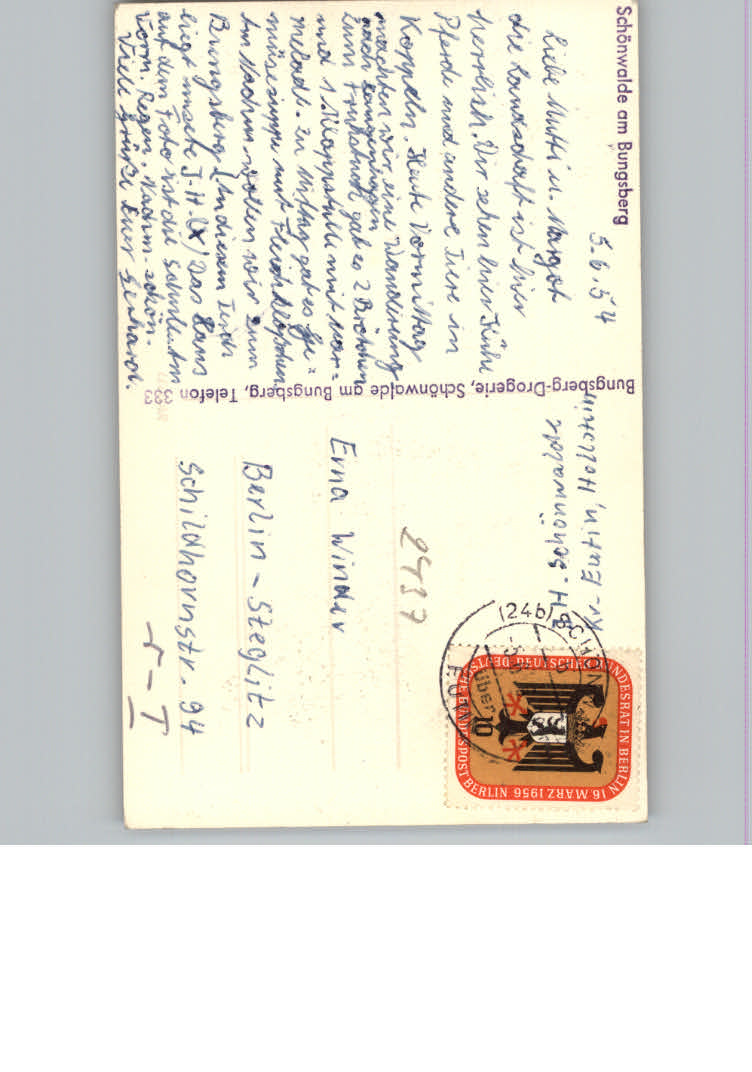 Schönwalde am Bungsberg
5.6.57
Liebe Mutti u. Margot
die Landschaft ist hier
herrlich. Wir sehen hier Kühe
Pferde und andere Tiere in
Koppeln. Heute Vormittag
machten wir eine Wanderung
nach
Zum Frühstück gab es 2 Brötchen
und 1 Klappstulle mit Mar=
melade. Zu Mittag gab es Ge=
müsesuppe mit Fleischklopsen
Am Nachm. wollen wir zum
Bungsberg (An diesem Teich
liegt unsere J-H. (X) Das Haus
auf dem Foto ist die Schule. Am
Vorm. Regen. Nachm. schön.
Viele Grüße Euer Gerhard.
Bungsberg-Drogerie, Schönwalde am Bungsberg, Telefon 333
J H. Schönwalde
Kr. Eutin, Holstein
2437
Erna Winder
Berlin-Steglitz
Schildhornstr. 94
(24b) SCHÖNW
über
EUTIN
DEUTSCHER BUNDESRAT IN BERLIN
16 MÄRZ 1956
DEUTSCHE BUNDESPOST BERLIN
10